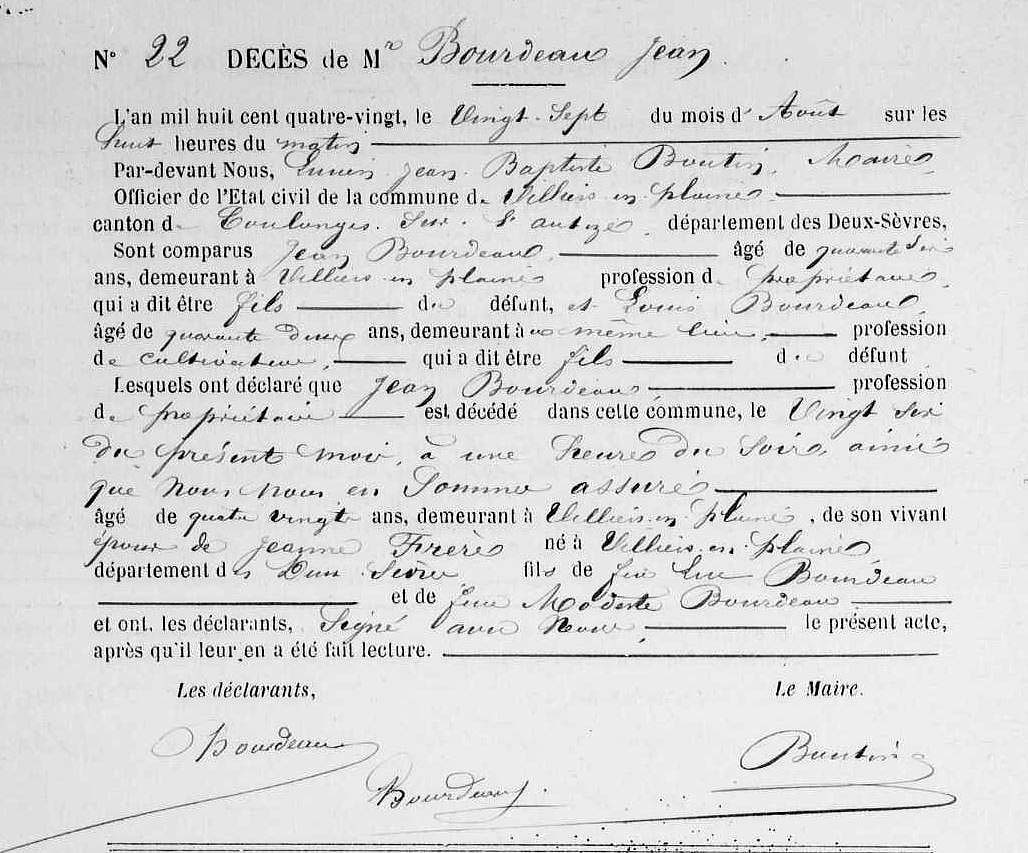 N° 22 DECÈS de Mr Bourdeau Jean
L'an mil huit cent quatre-vingt, le Vingt-Sept du mois d' Août sur les
huit heures du matin
Par-devant Nous, Jean Baptiste Boutin, Maire
Officier de l'Etat civil de la commune de Villiers en plaine
canton de Coulonges-Sur-l'autize, département des Deux-Sèvres,
Sont comparus Jean Bourdeau, âgé de quarante six
ans, demeurant à Villiers en plaine profession de propriétaire,
qui a dit être fils du défunt, et Louis Bourdeau,
âgé de quarante deux ans, demeurant à même lieu, profession
de cultivateur, qui a dit être fils du défunt
Lesquels ont déclaré que Jean Bourdeau, profession
de propriétaire est décédé dans cette commune, le Vingt Six
du présent mois, à une heure du Soir, ainsi
que nous nous en Sommes assuré
âgé de quatre vingts ans, demeurant à Villiers en plaine, de son vivant
époux de Jeanne Frère né à Villiers en plaine
département des Deux-Sèvres, fils de feu Bourdeau
et de feue Modeste Bourdeau
et ont, les déclarants, Signé avec Nous, le présent acte,
après qu'il leur en a été fait lecture.
Les déclarants, Le Maire.
Bourdeau Boutin
Bourdeau